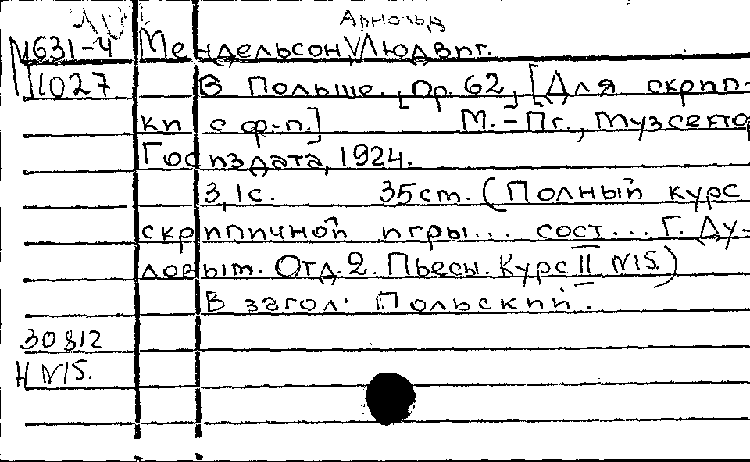 Арнольд
М631-4 Мендельсон, Людвиг.
1027 В Польше. [Ор. 62, [Для скрип-
ки с ф-п.] М.-Пг., Музсектор
Госиздата, 1924.
3,1с. 35см. (Полный курс
скрипичной игры... сост... Г. Ду-
ловым. Отд. 2. Пьесы. Курс II №15.)
В загол: Польский.
30812
Н №15.